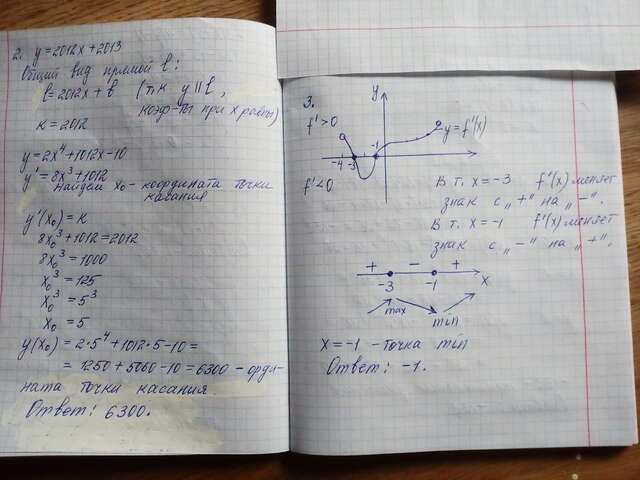 2. y=2012x+2013
Общий вид прямой l:
l=2012x+b (т.к y||l,
коэф-ты при x равны)
k=2012
y=2x⁴+1012x-10
y'=8x³+1012
Найдем x₀ - координата точки
касания
y'(x₀)=k
8x₀³+1012=2012
8x₀³=1000
x₀³=125
x₀³=5³
x₀=5
y(x₀)=2·5⁴+1012·5-10=
=1250+5060-10=6300-орди-
ната точки касания.
Ответ: 6300.
3.
y
f'>0
-1
y=f'(x)
-4 -3
x
f'<0
В т. x=-3 f'(x) меняет
знак с „+“ на „-“.
В т. x=-1 f'(x) меняет
знак с „-“ на „+“.
+ - +
-3 -1 x
max
min
x=-1 - точка min
Ответ: -1.